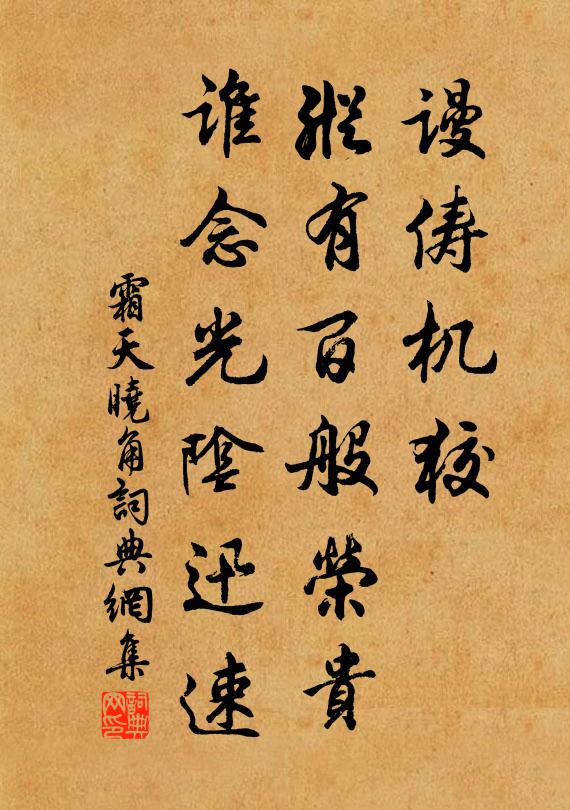 谩俦机狡
縱有百般榮貴
谁念光陰迅速
霜天曉角詞典網集
詞典网印